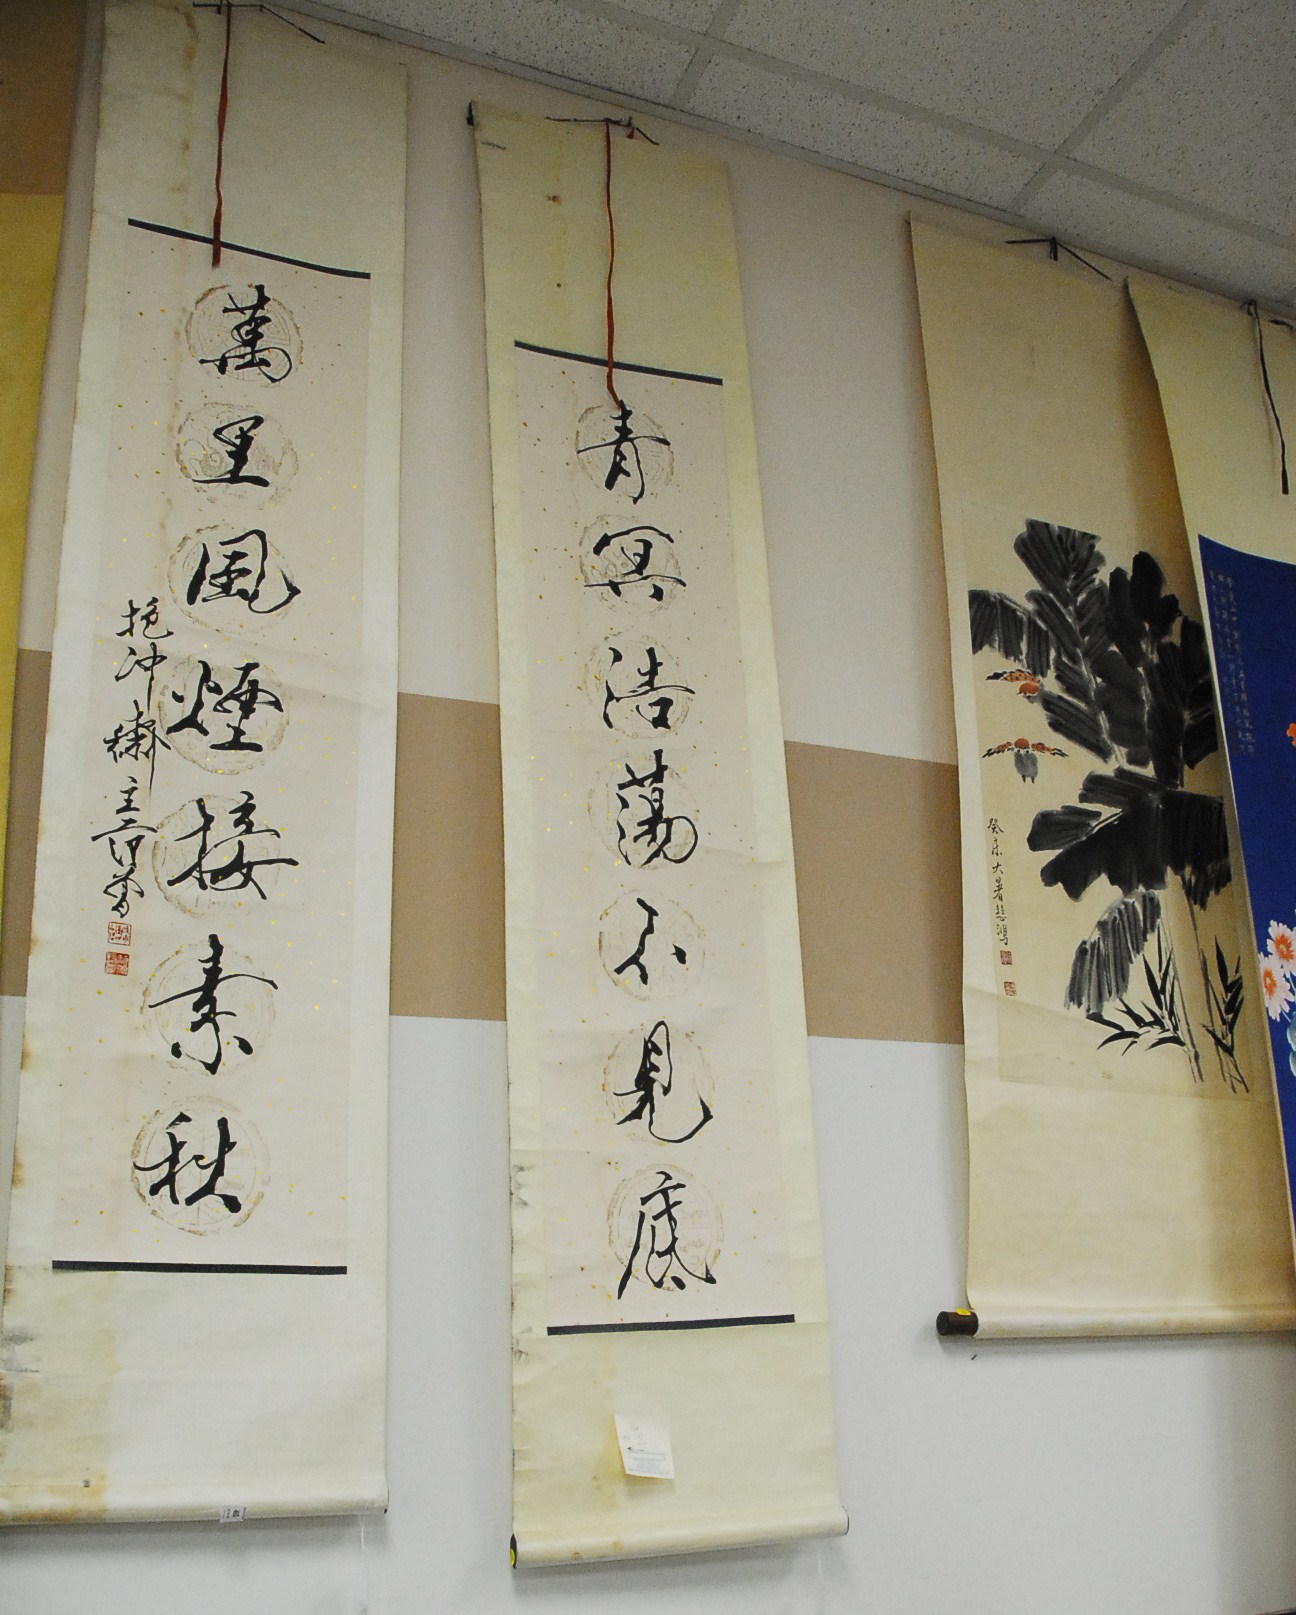 青冥浩蕩不見底
萬里風煙接素秋
抱冲齋主范曾
癸未大暑悲鴻